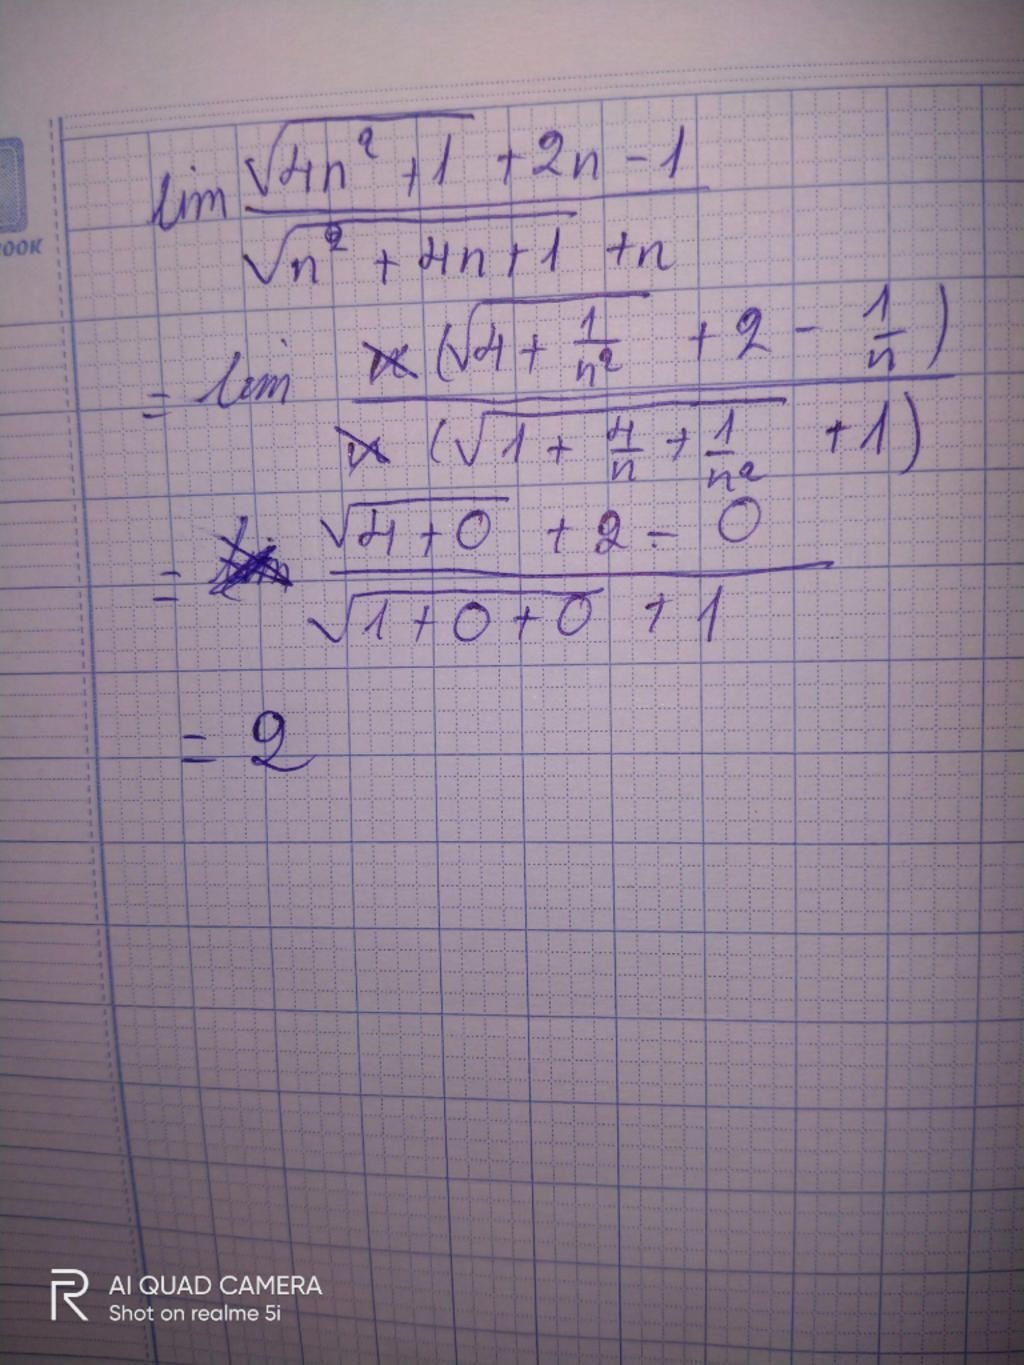 lim (√(4n² + 1) + 2n - 1) / (√(n² + 4n + 1) + n)
= lim n(√(4 + 1/n²) + 2 - 1/n) / n(√(1 + 4/n + 1/n²) + 1)
= (√(4 + 0) + 2 - 0) / (√(1 + 0 + 0) + 1)
= 2
OOK
AI QUAD CAMERA
Shot on realme 5i